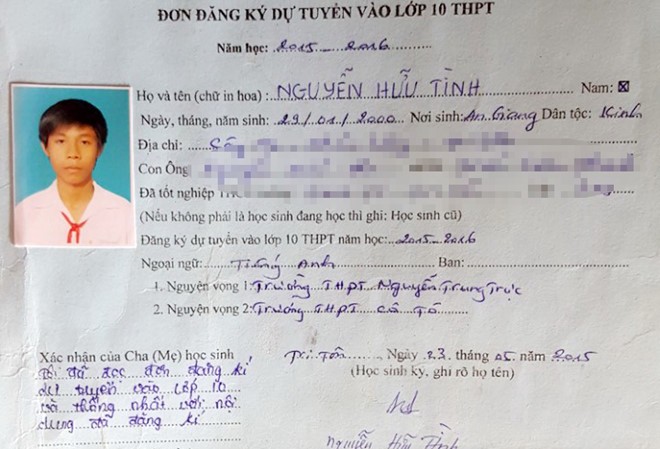 ĐƠN ĐĂNG KÝ DỰ TUYỂN VÀO LỚP 10 THPT
Năm học: 2015 - 2016
Họ và tên (chữ in hoa): NGUYỄN HỮU TÌNH Nam: ☒
Ngày, tháng, năm sinh: 29/01/2000 Nơi sinh: An Giang Dân tộc: Kinh
Địa chỉ:
Con Ông
Đã tốt nghiệp
(Nếu không phải là học sinh đang học thì ghi: Học sinh cũ)
Đăng ký dự tuyển vào lớp 10 THPT năm học: 2015-2016
Ngoại ngữ: Tiếng Anh Ban:
1. Nguyện vọng 1: Trường THPT Nguyễn Trung Trực
2. Nguyện vọng 2: Trường THPT Cô Tô
Xác nhận của Cha (Mẹ) học sinh
Tôi đã đọc đơn đăng kí
dự tuyển vào lớp 10
và thống nhất với nội
dung đã đăng kí.
Tri Tôn, Ngày 23 tháng 05 năm 2015
(Học sinh ký, ghi rõ họ tên)
Nguyễn Hữu Tình